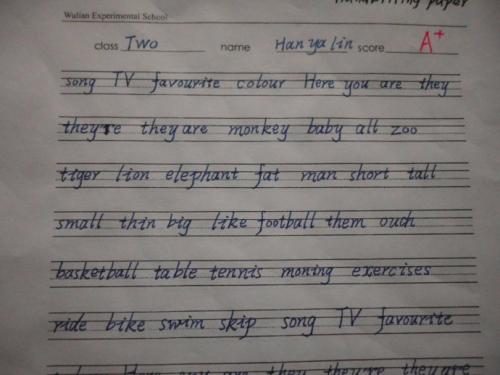 handwriting paper
Wulian Experimental School
class Two name Han ya lin score A+
song TV favourite colour Here you are they
they're they are monkey baby all zoo
tiger lion elephant fat man short tall
small thin big like football them ouch
basketball table tennis moning exercises
ride bike swim skip song TV favourite
Here you are they they're they are